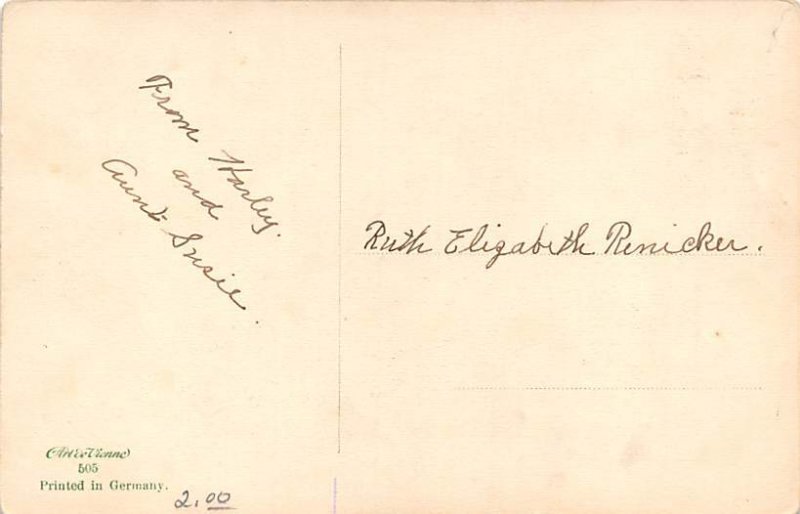 From Harley.
and
Aunt Susie.
Ruth Elizabeth Renicker.
505
Printed in Germany.
2.00